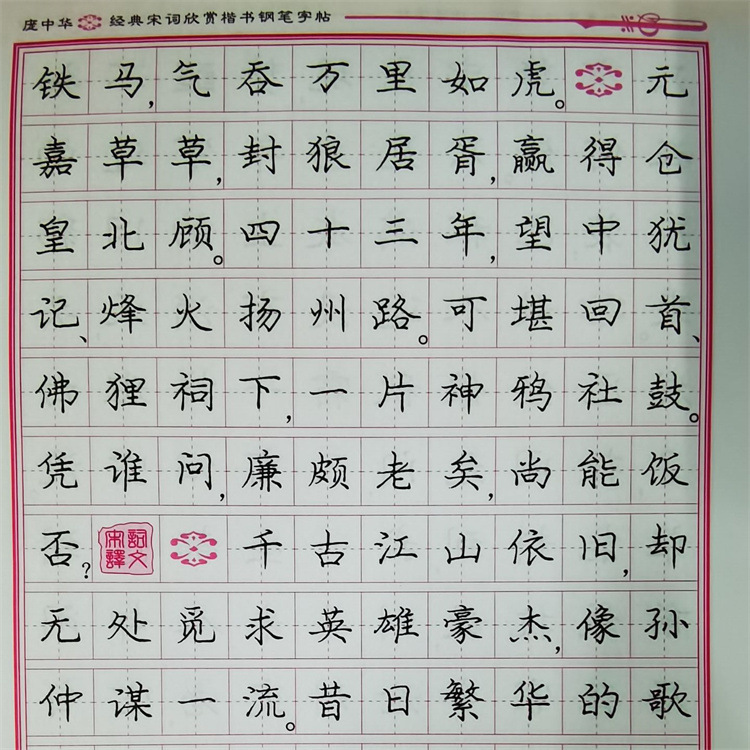 庞中华 经典宋词欣赏楷书钢笔字帖
铁马,气吞万里如虎。元
嘉草草,封狼居胥,赢得仓
皇北顾。四十三年,望中犹
记、烽火扬州路。可堪回首、
佛狸祠下,一片神鸦社鼓。
凭谁问,廉颇老矣,尚能饭
否?宋词译文千古江山依旧,却
无处觅求英雄豪杰,像孙
仲谋一流。昔日繁华的歌